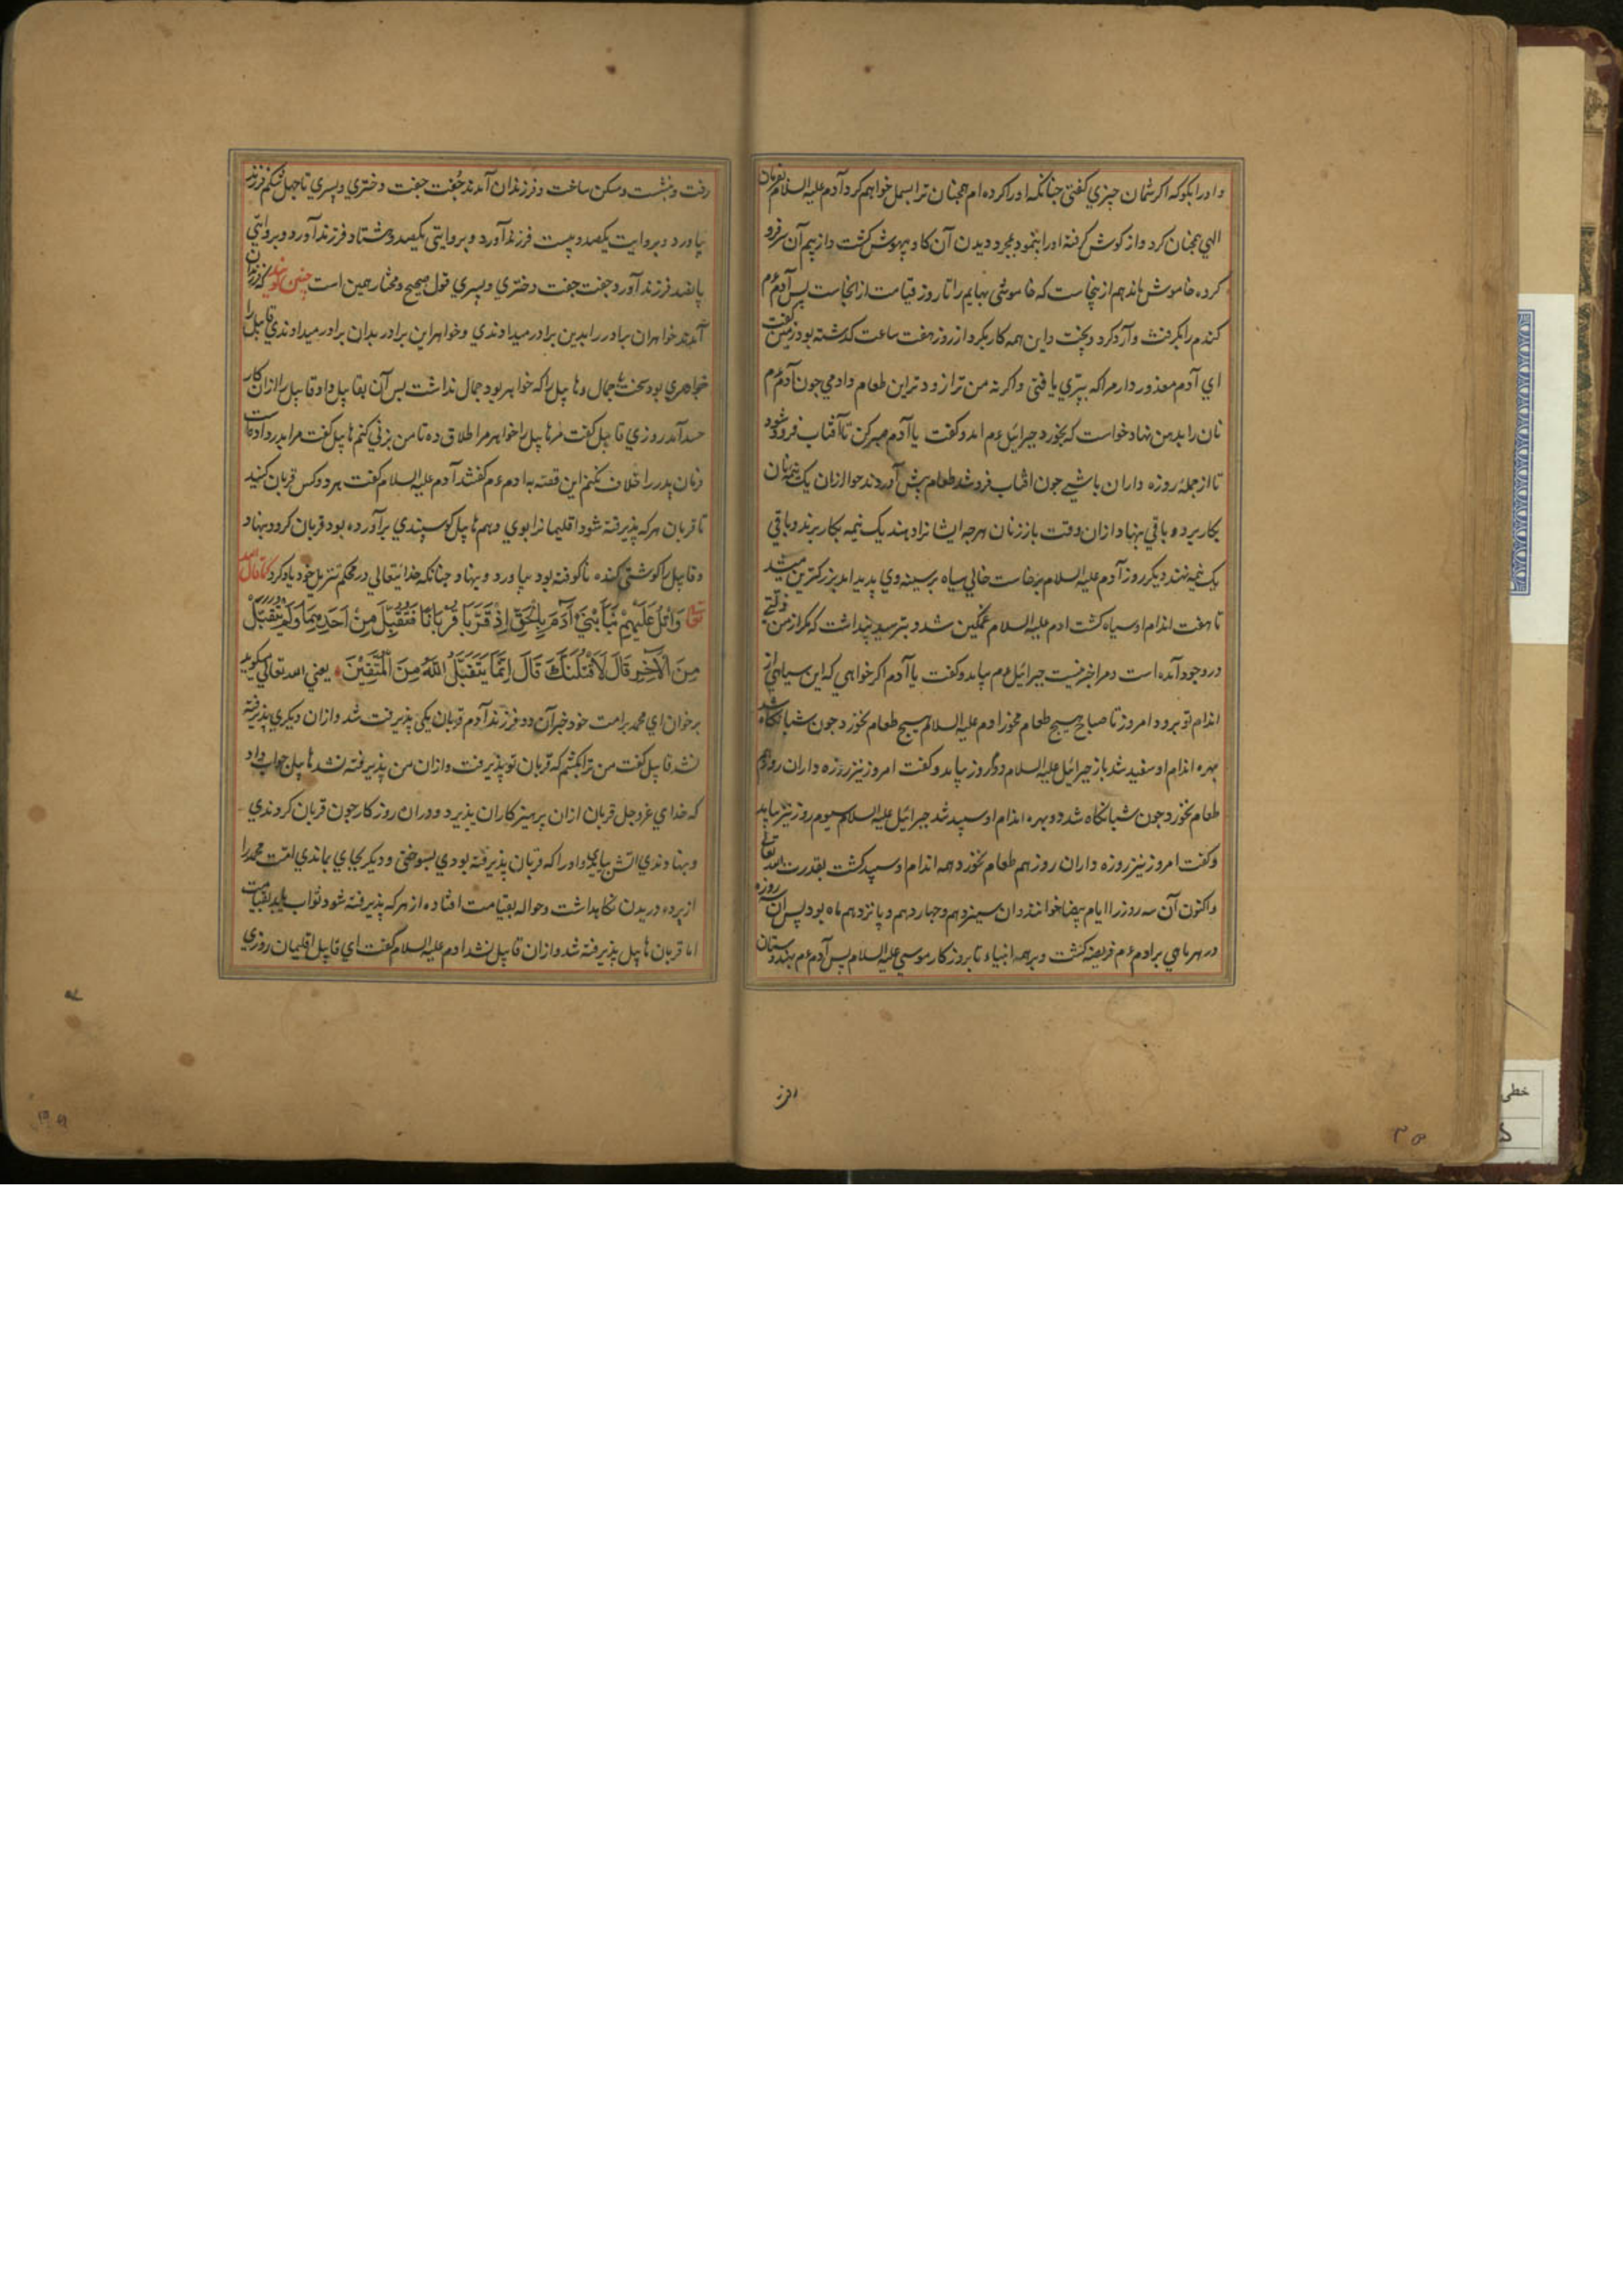 و او را بکو که اکر بثمان چیزي کفتي جنانکه او را کرده ام همچنان ترا بسمل خواهم کرد آدم علیه السلام بفرمان
الهي همچنان کرد و از کوش کرفته او را بنمود بمجرد دیدن آن کاو بیهوش کشت و از بیم آن سر فرو
کرده خاموش ماند هم از ینجاست که خاموشي بهایم را تا روز قیامت از انجاست پس آدم ع م
کندم را بکرفت و آرد کرد و بپخت و این همه کار بکرد از روز هفت ساعت کذشته بود زمین کفت
اي آدم معذور دار مرا که پیري یافتي و اکر نه من ترا زودتر این طعام دادمي جون آدم ع م
نان را پیش نهاد خواست که بخورد جبرائیل ع م امد و کفت یا آدم صبر کن تا آفتاب فرو شود
تا از جمله روزه داران باشي جون افتاب فرو شد طعام پیش آوردند حوا ازان یک نیمه نان
بکار برد و باقي بنهاد ازان وقت باز زنان هرجه ایشانرا دهند یک نیمه بکار برند و باقي
یک نیمه نهند دیکر روز آدم علیه السلام برخاست خالي سیاه بر سینه وي پدید امد بزرکترین میشد
تا هفت اندام او سیاه کشت ادم علیه السلام غمکین شد و بترسید پنداشت که مکر از من زلتي
در وجود آمده است و مرا خبر نیست جبرائیل ع م بیامد و کفت یا آدم اکر خواهي که این سیاهي از
اندام تو برود امروز تا صباح هیچ طعام مخور ادم علیه السلام هیچ طعام نخورد جون شبانکاه شد
بهره اندام او سفید شد باز جبرائیل علیه السلام دوم روز بیامد و کفت امروز نیز روزه داران روز هم
طعام نخورد جون شبانکاه شد دو بهره اندام او سپید شد جبرائیل علیه السلام سیوم روز نیز بیامد
و کفت امروز نیز روزه داران روز هم طعام نخورد همه اندام او سپید کشت بقدرت الله تعالی
و اکنون آن سه روز را ایام بیضا خوانند و ان سیزدهم و جهاردهم و پانزدهم ماه بود پس آن روزه
در هر ماهي بر ادم ع م فریضه کشت و بر همه انبیاء تا بروزکار موسي علیه السلام پس آدم ع م بهندوستان
رفت و بنشست و مسکن ساخت و فرزندان آمدند جُفت جفت دختري و پسري تا جهل شکم فرزند
بیاورد و بروایت یکصد و بیست فرزند آورد و بروایتي یکصد و هشتاد فرزند آورد و بروایتي
پانصد فرزند آورد جفت جفت دختري و پسري قول صحیح و مختار همین است چنین کویند که فرزندان
آمدند خواهران برادر را بدین برادر میدادندي و خواهر این برادر بدان برادر میدادندي قابیل را
خواهري بود سخت با جمال و هابیل را که خواهر بود جمال نداشت پس آن بقابیل داد و قابیل را ازان کار
حسد آمد روزي قابیل کفت مر هابیل را خواهر مرا طلاق ده تا من بزني کنم هابیل کفت مرا پدر داده است
فرمان پدر را خلاف نکنم این قصه به ادم ع م کفتند آدم علیه السلام کفت هر دو کس قربان کنید
تا قربان هر که پذیرفته شود اقلیما را بوي دهم هابیل کوسپندي برآورده بود قربان کرد و بنهاد
و قابیل را کوشتي کنده ناکوفته بود بیاورد و بنهاد جنانکه خدایتعالي در محکم تنزیل خود یاد کرد کما قال الله
تعالی وَاتْلُ عَلَیْهِمْ نَبَأَ ابْنَيْ آدَمَ بِالْحَقِّ اِذْ قَرَّبَا قُرْبَانًا فَتُقُبِّلَ مِنْ اَحَدِهِمَا وَلَمْ یُتَقَبَّلْ
مِنَ الْآخَرِ قَالَ لَاَقْتُلَنَّكَ قَالَ اِنَّمَا یَتَقَبَّلُ اللَّهُ مِنَ الْمُتَّقِیْنَ یعني الله تعالي میکوید
برخوان اي محمد بر امت خود خبر آن دو فرزند آدم قربان یکي پذیرفت شد و ازان دیکري پذیرفته
نشد قابیل کفت من ترا بکشم که قربان تو پذیرفت و ازان من پذیرفته نشد هابیل جواب داد
که خداي عزوجل قربان ازان پرهیزکاران پذیرد و دران روزکار جون قربان کردندي
و بنهادندي آتش بیامدي و او را که قربان پذیرفته بودي بسوختي و دیکر بجاي بماندي امت محمد را
از پرده دریدن نکاهداشت و حواله بقیامت افتاده از هر که پذیرفته شود ثواب یابد بقیامت
اما قربان هابیل پذیرفته شد و ازان قابیل نشد ادم علیه السلام کفت اي قابیل اقلیمان روزي
رفت
خطی